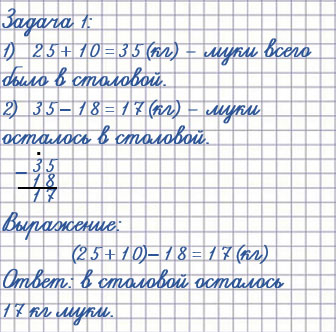 Задача 1:
1) 25+10=35(кг) – муки всего
было в столовой.
2) 35–18=17(кг) – муки
осталось в столовой.
35
– 18
17
Выражение:
(25+10)–18=17(кг)
Ответ: в столовой осталось
17 кг муки.